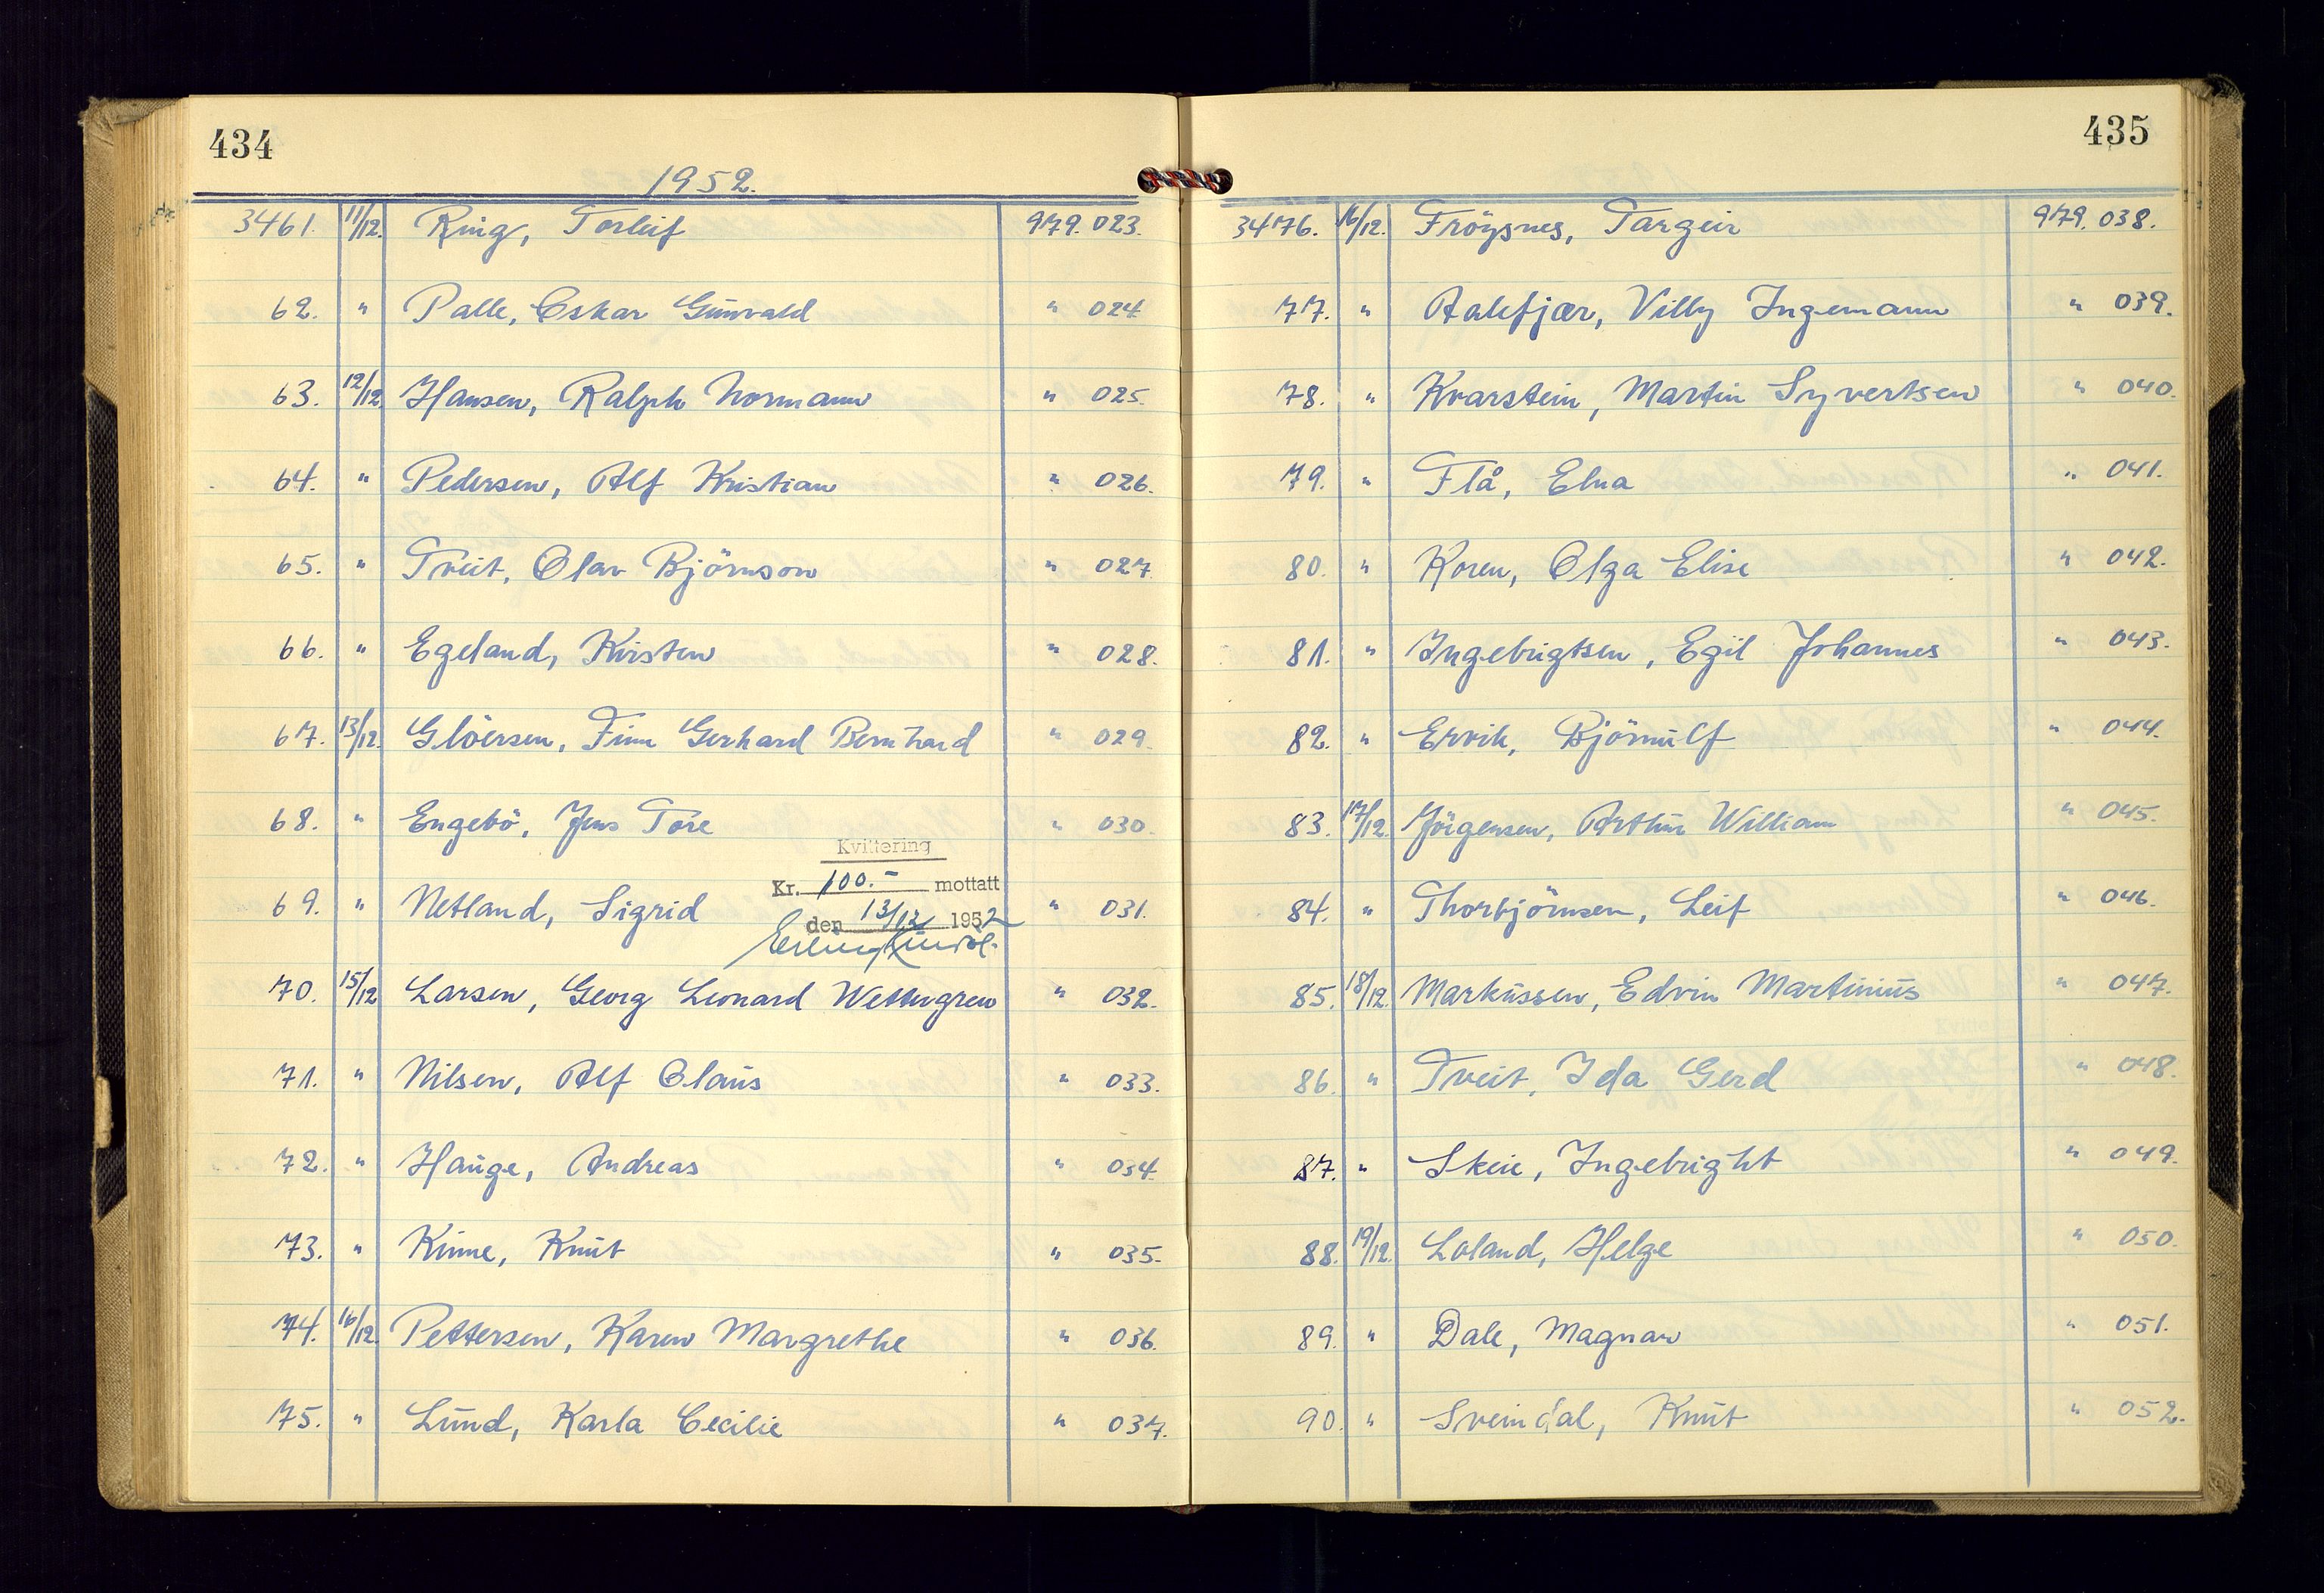 434
1952.
3461. 11/12. Ring, Torleif 979.023.
62. " Palle, Oskar Gunvald " 024
63. 12/12. Hansen, Ralph Normann " 025.
64. " Pedersen, Alf Kristian " 026.
65. " Tveit, Olav Björnson " 027
66. " Egeland, Kirsten " 028.
67. 13/12. Glöersen, Finn Gerhard Bernhard " 029.
68. " Engebö, Jens Tore " 030.
Kvittering
Kr. 100.- mottatt
69. " Netland, Sigrid " 031.
den 13/12 1952
70. 15/12 Larsen, Georg Leonard Wettergren " 032.
71. " Nilsen, Alf Olaus " 033.
72. " Hauge, Andreas " 034.
73. " Kinne, Knut " 035.
74. 16/12. Pettersen, Karen Margrethe " 036.
75. " Lund, Karla Cecilie " 037.
435
3476. 16/12. Fröysnes, Targeir 979.038.
77. " Aalefjær, Villy Ingemann " 039.
78. " Kvarstein, Martin Syvertsen " 040.
79. " Flå, Elna " 041.
80. " Koren, Olga Elise " 042.
81. " Ingebrigtsen, Egil Johannes " 043.
82. " Ervik, Björnulf " 044.
83. 17/12. Jörgensen, Arthur William " 045.
84. " Thorbjörnsen, Leif " 046.
85. 18/12. Markussen, Edvin Martinius " 047.
86. " Tveit, Ida Gerd " 048.
87. " Skeie, Ingebright " 049.
88. 19/12. Loland, Helge " 050.
89. " Dale, Magnar " 051.
90. " Sveindal, Knut " 052.